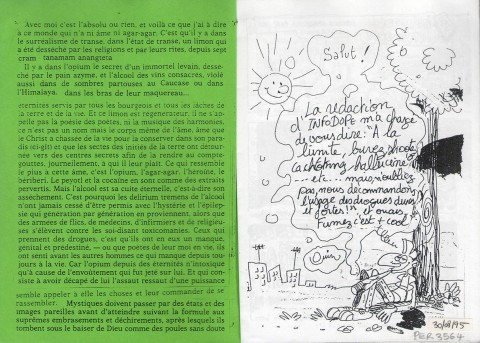 Avec moi c'est l'absolu ou rien, et voilà ce que j'ai à dire
à ce monde qui n'a ni âme ni agar-agar. C'est qu'il y a dans
le surréalisme de transe, dans l'état de transe, un limon qui
a été desséché par les religions et par leurs rites, depuis sept
cram tanamam anangteta
Il y a dans l'opium le secret d'un immortel levain, dessé-
ché par le pain azyme, et l'alcool des vins consacrés, violé
aussi dans de sombres partouses au Caucase ou dans
l'Himalaya, dans les bras de leur maquereau...
éternités servis par tous les bourgeois et tous les lâches de
la terre et de la vie. Et ce limon est régénérateur, il ne s'ap-
pelle pas la poésie des poètes, ni la musique des harmonies,
ce n'est pas un nom mais le corps même de l'âme, âme que
le Christ a chassée de la vie pour la conserver dans son para-
dis (ci-gît) et que les sectes des initiés de la terre ont détour-
née vers des centres secrets afin de la rendre au compte-
gouttes, journellement, à qui il leur plaît. Ce qui ressemble
le plus à cette âme, c'est l'opium, l'agar-agar, l'héroïne, le
béribéri. Le peyotl et la cocaïne en sont comme des extraits
pervertis. Mais l'alcool est sa cuite éternelle, c'est-à-dire son
assèchement. C'est pourquoi les delirium tremens de l'alcool
n'ont jamais cessé d'être permis avec l'hystérie et l'épilep-
sie qui génération par génération en proviennent, alors que
des armées de flics, de médecins, d'infirmiers et de religieu-
ses s'élèvent contre les soi-disant toxicomanies. Ceux qui
prennent des drogues, c'est qu'ils ont en eux un manque,
génital et prédestiné, — ou que poètes de leur moi en vie, ils
ont senti avant les autres hommes ce qui manque depuis tou-
jours à la vie. Car l'opium depuis des éternités n'intoxique
qu'à cause de l'envoûtement qui fut jeté sur lui. Et qui con-
siste à avoir décapé de lui l'assaut ressaut d'une puissance
semble appeler à elle les choses et leur commander de se
rassembler. Mystiques doivent passer par des états et des
images pareilles avant d'atteindre suivant la formule aux
suprêmes embrasements et déchirements, après lesquels ils
tombent sous le baiser de Dieu comme des poules sans doute
Salut !
La rédaction
d'INFODOPE m'a chargé
de vous dire: "À la
limite, buvez, shootez,
hallucinez...
...etc... mais, n'oubliez
pas, nous décommandons
l'usage des drogues dures
et fortes!" et ouais,
Fumez c'est + cool
Ouin!
30/08/95
PER 3564